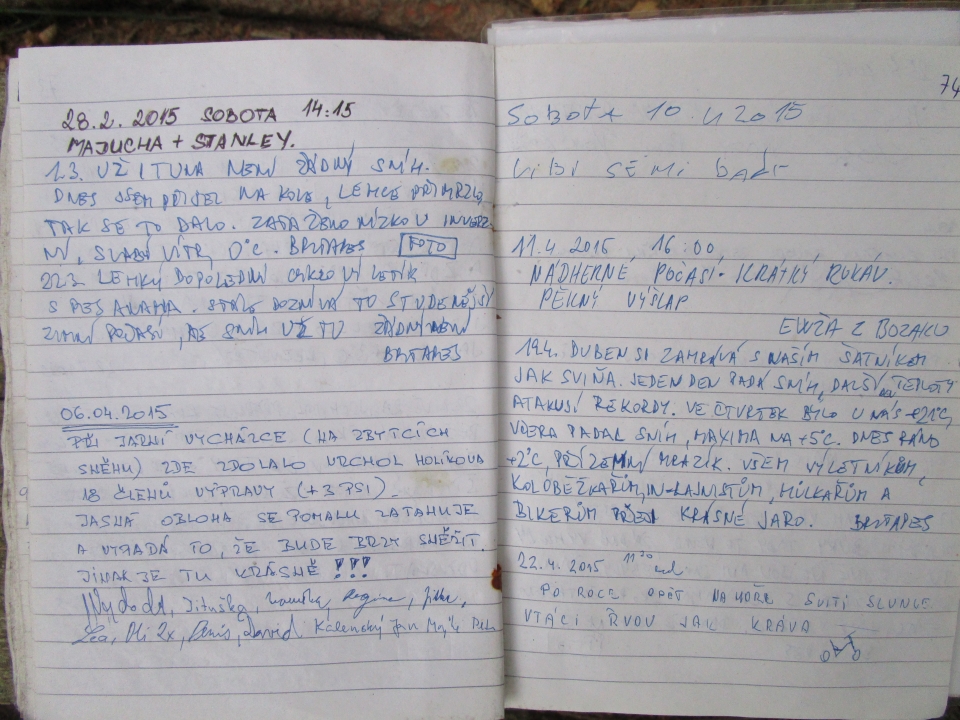 28.2. 2015 SOBOTA 14:15
MAJUCHA + STANLEY.
1.3. UŽ I TU NENÍ ŽÁDNÝ SNÍH.
DNES JSEM PŘIJEL NA KOLE, LEHCE PŘIMRZLO,
TAK SE TO DALO. ZATAŽENO NÍZKOU INVERZ
NÍ, SLABÝ VÍTR, 0°C. BRTAPES FOTO
22.3. LEHKÝ DOPOLEDNÍ CYKLOVÝLETÍK
S PES. STÁLE DOZNÍVÁ TO STUDENĚJŠÍ
ZIMNÍ POČASÍ, AČ SNÍH UŽ TU ŽÁDNÝ NENÍ
BRTAPES
06.04.2015
PŘI JARNÍ VYCHÁZCE (NA ZBYTCÍCH
SNĚHU) ZDE ZDOLALO VRCHOL HOLÍKOVA
18 ČLENŮ VÝPRAVY (+3 PSI).
JASNÁ OBLOHA SE POMALU ZATAHUJE
A VYPADÁ TO, ŽE BUDE BRZY SNĚŽIT.
JINAK JE TU KRÁSNĚ !!!
Jituška, Regina, Jitka,
Léa, Oli 2x, Denis, David Kálenský Jan
74
SOBOTA 10. 2015
LÍBÍ SE MI
11.4. 2015 16:00
NÁDHERNÉ POČASÍ - KRÁTKÝ RUKÁV.
PĚKNÝ VÝŠLAP
EVŽA Z BOZAKU
19.4. DUBEN SI ZAHRÁVÁ S NAŠÍM ŠATNÍKEM
JAK SVIŇA. JEDEN DEN PADÁ SNÍH, DALŠÍ TEPLOTY
ATAKUJÍ REKORDY. VE ČTVRTEK BYLO U NÁS +21°C,
VČERA PADAL SNÍH, MAXIMA NA +5°C. DNES RÁNO
+2°C, PŘÍZEMNÍ MRAZÍK. VŠEM VÝLETNÍKŮM,
KOLOBĚŽKAŘŮM, IN-LAJNISTŮM, HŮLKAŘŮM A
BIKERŮM PŘEJI KRÁSNÉ JARO. BRTAPES
22.4. 2015 11 20
PO ROCE OPĚT NAHOŘE SVÍTÍ SLUNCE
VTÁCI ŘVOU JAK KRÁVA